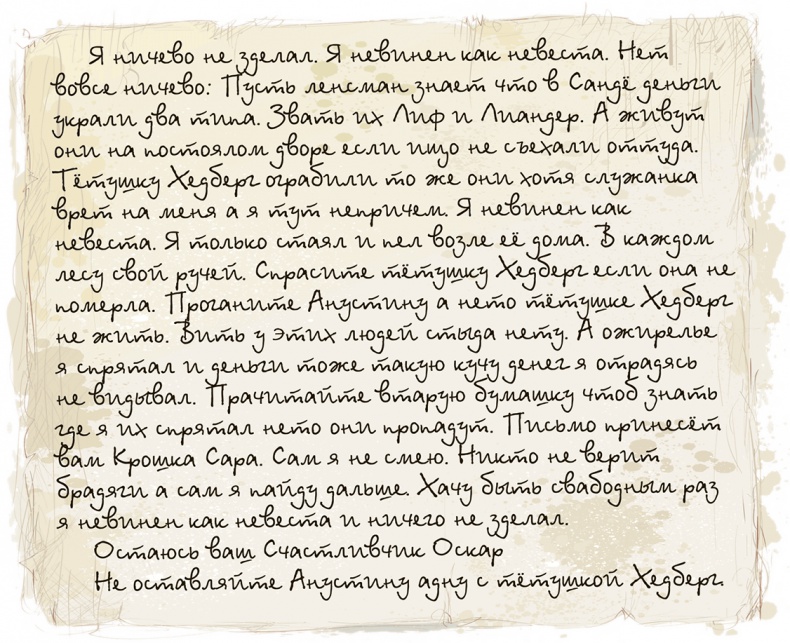 Я ничево не зделал. Я невинен как невеста. Нет
вовсе ничево: Пусть ленсман знает что в Сандё деньги
украли два типа. Звать их Лиф и Лиандер. А живут
они на постоялом дворе если ищо не съехали оттуда.
Тётушку Хедберг ограбили то же они хотя служанка
врет на меня а я тут непричем. Я невинен как
невеста. Я только стаял и пел возле её дома. В каждом
лесу свой ручей. Спрасите тётушку Хедберг если она не
померла. Проганите Анустину а нето тётушке Хедберг
не жить. Вить у этих людей стыда нету. А ожирелье
я спрятал и деньги тоже такую кучу денег я отрадясь
не видывал. Прачитайте втарую бумашку чтоб знать
где я их спрятал нето они пропадут. Письмо принесёт
вам Крошка Сара. Сам я не смею. Никто не верит
брадяги а сам я пайду дальше. Хачу быть свабодным раз
я невинен как невеста и ничего не зделал.
Остаюсь ваш Счастливчик Оскар
Не оставляйте Анустину адну с тётушкой Хедберг.